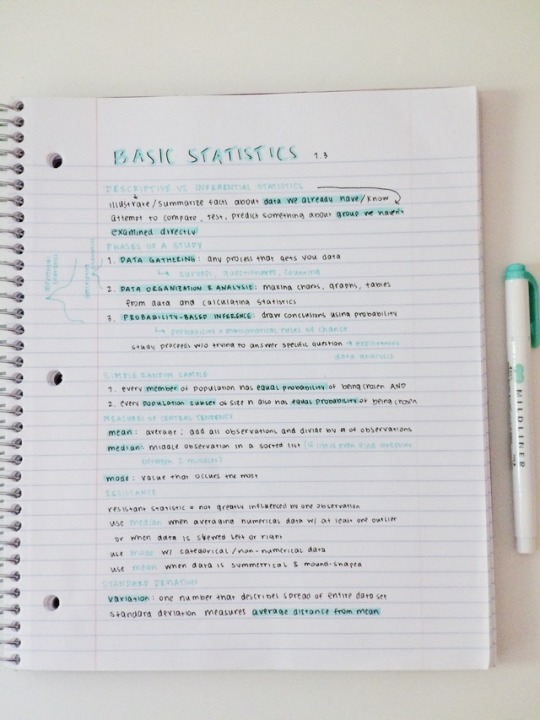 BASIC STATISTICS 1.3
DESCRIPTIVE VS INFERENTIAL STATISTICS
illustrate/summarize facts about data we already have/know
attempt to compare, test, predict something about group we haven't
examined directly
PHASES OF A STUDY
1. DATA GATHERING: any process that gets you data
↳ surveys, questionnaires, counting
2. DATA ORGANIZATION & ANALYSIS: making charts, graphs, tables
from data and calculating statistics
3. PROBABILITY-BASED INFERENCE: draw conclusions using probability
↳ probability = mathematical rules of chance
study process w/o trying to answer specific question → exploratory
data analysis
SIMPLE RANDOM SAMPLE
1. every member of population has equal probability of being chosen AND
2. every population subset of size n also has equal probability of being chosen
MEASURES OF CENTRAL TENDENCY
mean: average; add all observations and divide by # of observations
median: middle observation in a sorted list (if list is even
between 2 middles)
mode: value that occurs the most
RESISTANCE
resistant statistic = not greatly influenced by one observation
use median when averaging numerical data w/ at least one outlier
or when data is skewed left or right
use mode w/ categorical/non-numerical data
use mean when data is summetrical & mound-shaped
STANDARD DEVIATION
variation: one number that describes spread of entire data set
standard deviation measures average distance from mean
MILDLINER